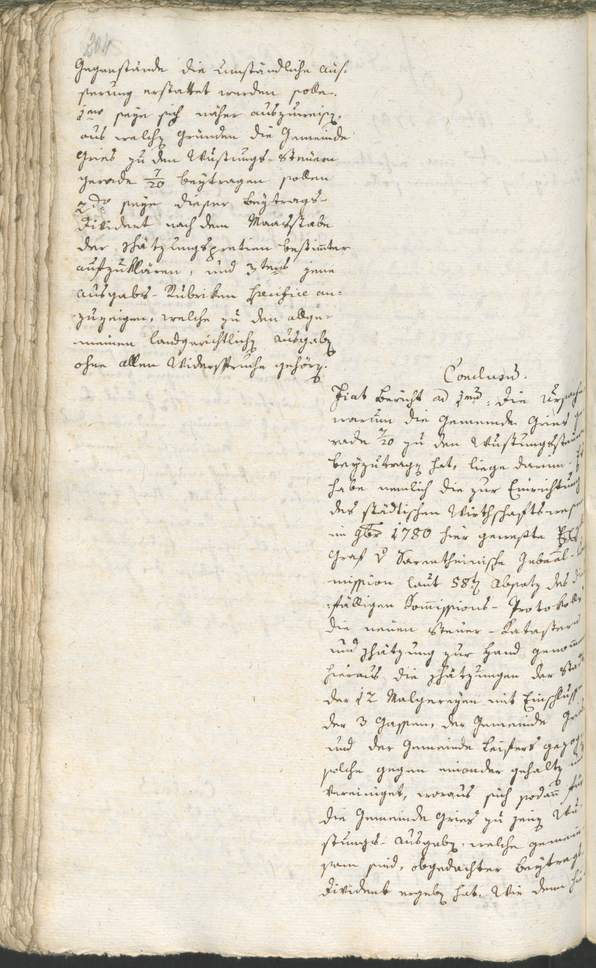 304
Gegenstände die umständliche Aus-
serung erstattet werden solle.
1mo seye sich näher auszuweisen,
aus welchen Gründen die Gemeinde
Gries zu den Wustungs-Steuern
gerade 7/20 beytragen sollen
2do seye dieser Beytrags-
Divident nach dem Maasstabe
der Schätzungspretien bestimmter
aufzuklären, und 3tens jene
Ausgabs-Rubriken specifice an-
zuzeigen, welche zu den allge-
meinen landgerichtlichen Ausgaben
ohne allen Widerspruche gehören.
Conclusum.
Fiat Bericht ad 1mum: die Ursache
warum die Gemeinde Gries ge
rade 7/20 zu den Wustungssteuern
beyzutragen hat, liege darin. Es
habe nemlich die zur Einrichtung
des städtischen Wirthschaftswesens
im 9ber 1780 hier geweste
Graf v Sarntheinische
mission laut 58ten Absatz des
fälligen Kommissions-Protokolls
die neuen Steuer-Kataster
und Schätzung zur Hand genommen
hieraus die Schätzungen der Stadt
der 12 Malgreyen mit Einschluss
der 3 Gassen, der Gemeinde Gries
und der Gemeinde Leifers gezogen
solche gegen einander gehalten und
vereiniget, woraus sich sodann für
die Gemeinde Gries zu jenen Wu-
stungs-Ausgaben, welche gemein
sam sind, obgedachter Beytrags
Divident ergeben hat. Wie dann